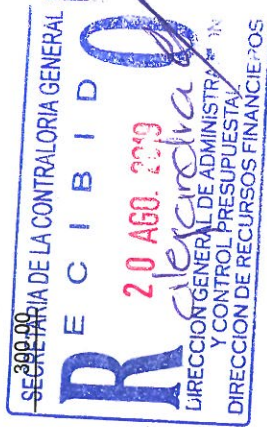 300-00
SECRETARIA DE LA CONTRALORIA GENERAL
RECIBIDO
20 AGO. 2019
alejandra
DIRECCION GENERAL DE ADMINISTRA
Y CONTROL PRESUPUESTAL
DIRECCION DE RECURSOS FINANCIEROS